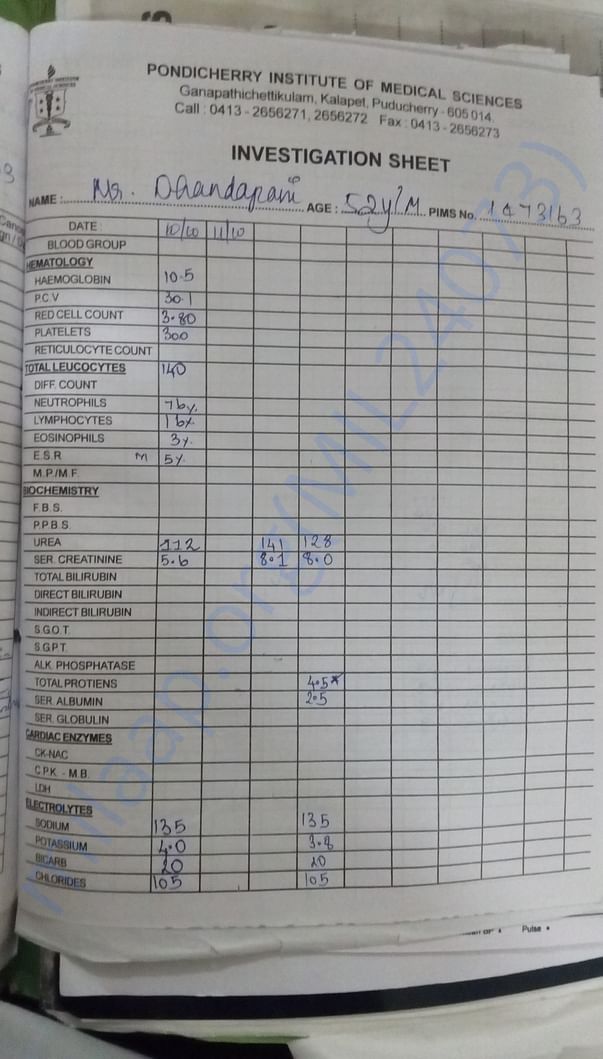 PONDICHERRY INSTITUTE OF MEDICAL SCIENCES
Ganapathichettikulam, Kalapet, Puducherry - 605 014.
Call : 0413 - 2656271, 2656272 Fax : 0413 - 2656273
INVESTIGATION SHEET
NAME : Mr. Dhandapani AGE : 52y/M PIMS No. 1473163
DATE : 10/10 11/10
BLOOD GROUP
HEMATOLOGY
HAEMOGLOBIN 10.5
P.C.V 30.1
RED CELL COUNT 3.80
PLATELETS 300
RETICULOCYTE COUNT
TOTAL LEUCOCYTES 140
DIFF. COUNT
NEUTROPHILS 76%
LYMPHOCYTES 16%
EOSINOPHILS 3%
E.S.R M 5%
M.P./M.F.
BIOCHEMISTRY
F.B.S.
P.P.B.S.
UREA 112 141 128
SER. CREATININE 5.6 8.1 8.0
TOTAL BILIRUBIN
DIRECT BILIRUBIN
INDIRECT BILIRUBIN
S.G.O.T.
S.G.P.T.
ALK. PHOSPHATASE
TOTAL PROTIENS 4.5*
SER. ALBUMIN 2.5
SER. GLOBULIN
CARDIAC ENZYMES
CK-NAC
C.P.K. - M.B.
LDH
ELECTROLYTES
SODIUM 135 135
POTASSIUM 4.0 3.8
BICARB 20 20
CHLORIDES 105 105
Pulse
milaap.org(MIL24073)